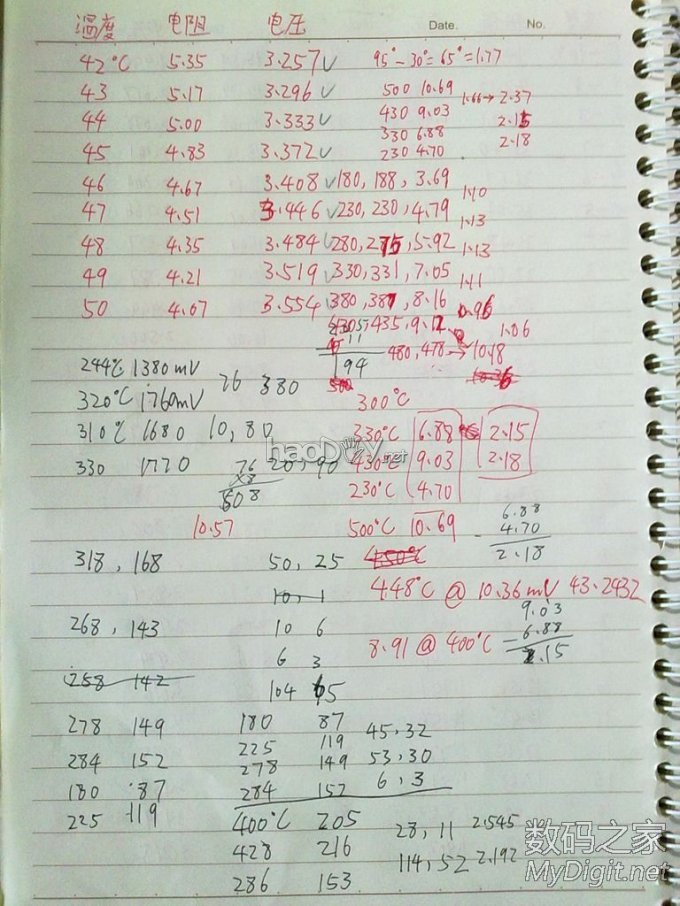 Date. No.
温度 电阻 电压
42°C 5.35 3.257V 95°-30°=65°=1.77
43 5.17 3.296V 500 10.69 1.66→2.37
44 5.00 3.333V 430 9.03 2.15
330 6.88 2.18
45 4.83 3.372V 230 4.70
46 4.67 3.408V 180,188,3.69
1.10
47 4.51 3.446V 230,230,4.79
1.13
48 4.35 3.484V 280,275,5.92 1.13
49 4.21 3.519V 330,331,7.05
1.11
50 4.07 3.554V 380,381,8.16
0.96
435,9.12 1.06
11
480,478→10.18
194
244°C 1380mV 76 380
320°C 1760mV 300°C
310°C 1680 10,80 330°C 6.88 2.15
haoDIY.net
330 1770 76 20,90 430°C 9.03 2.18
×8
608 230°C 4.70
6.88
10.57 500°C 10.69 - 4.70
2.18
318,168 50,25 450°C
10,1 448°C @ 10.36mV 43.2432
9.03
268,143 10 6 8.91 @ 400°C - 6.88
2.15
6 3
258 142
104 65
278 149 180 87 45,32
225 119
284 152 278 149 53,30
180 87 284 152 6,3
225 119 400°C 205 28,11 2.545
428 216 114,52 2.192
286 153
数码之家
MyDigit.net